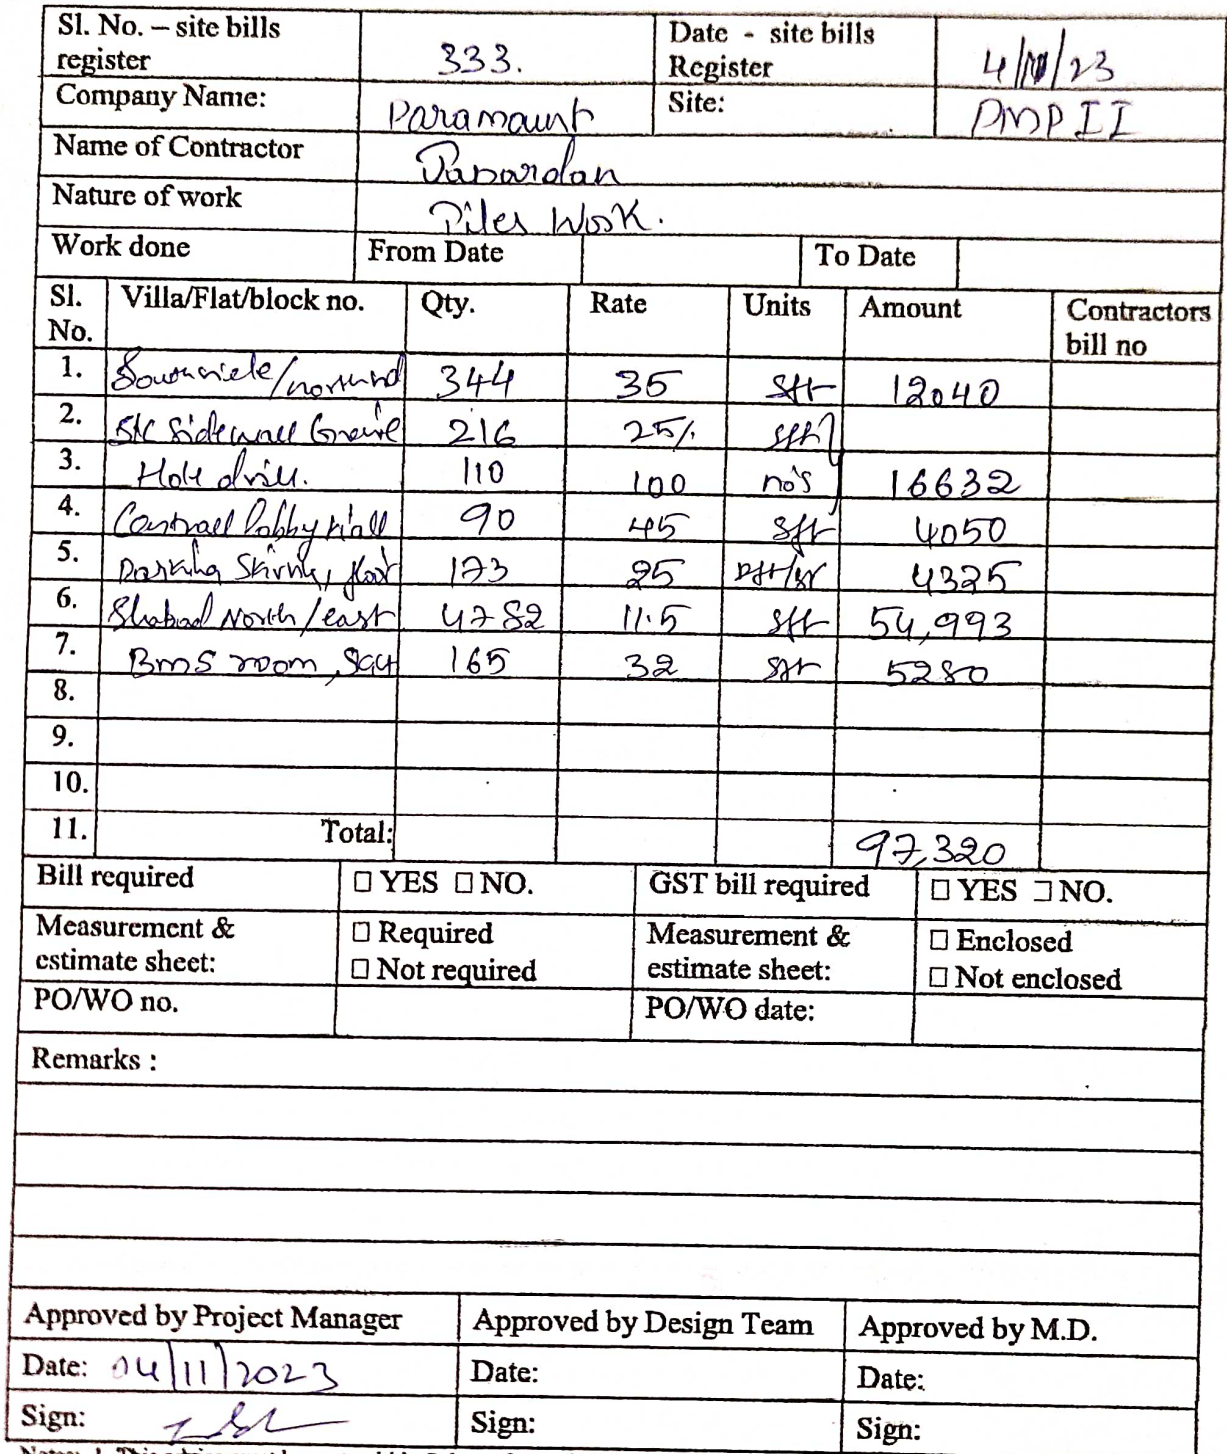 Sl. No. – site bills register 333. Date - site bills Register 4/11/23
Company Name: Paramount Site: PMP II
Name of Contractor Janardan
Nature of work Tiles Work.
Work done From Date To Date
Sl. No. Villa/Flat/block no. Qty. Rate Units Amount Contractors bill no
1. Southside/ 344 35 sft 12040
2. Side wall 216 25/. sft
3. Hole drill. 110 100 no's 16632
4. lobby 90 45 sft 4050
5. Parking 173 25 4325
6. Shabad North/east 4782 11.5 sft 54,993
7. Bms room, 165 32 sft 5280
8.
9.
10.
11. Total: 97,320
Bill required □ YES □ NO. GST bill required □ YES □ NO.
Measurement & estimate sheet: □ Required □ Not required Measurement & estimate sheet: □ Enclosed □ Not enclosed
PO/WO no. PO/WO date:
Remarks :
Approved by Project Manager Approved by Design Team Approved by M.D.
Date: 04/11/2023 Date: Date:
Sign: Sign: Sign: